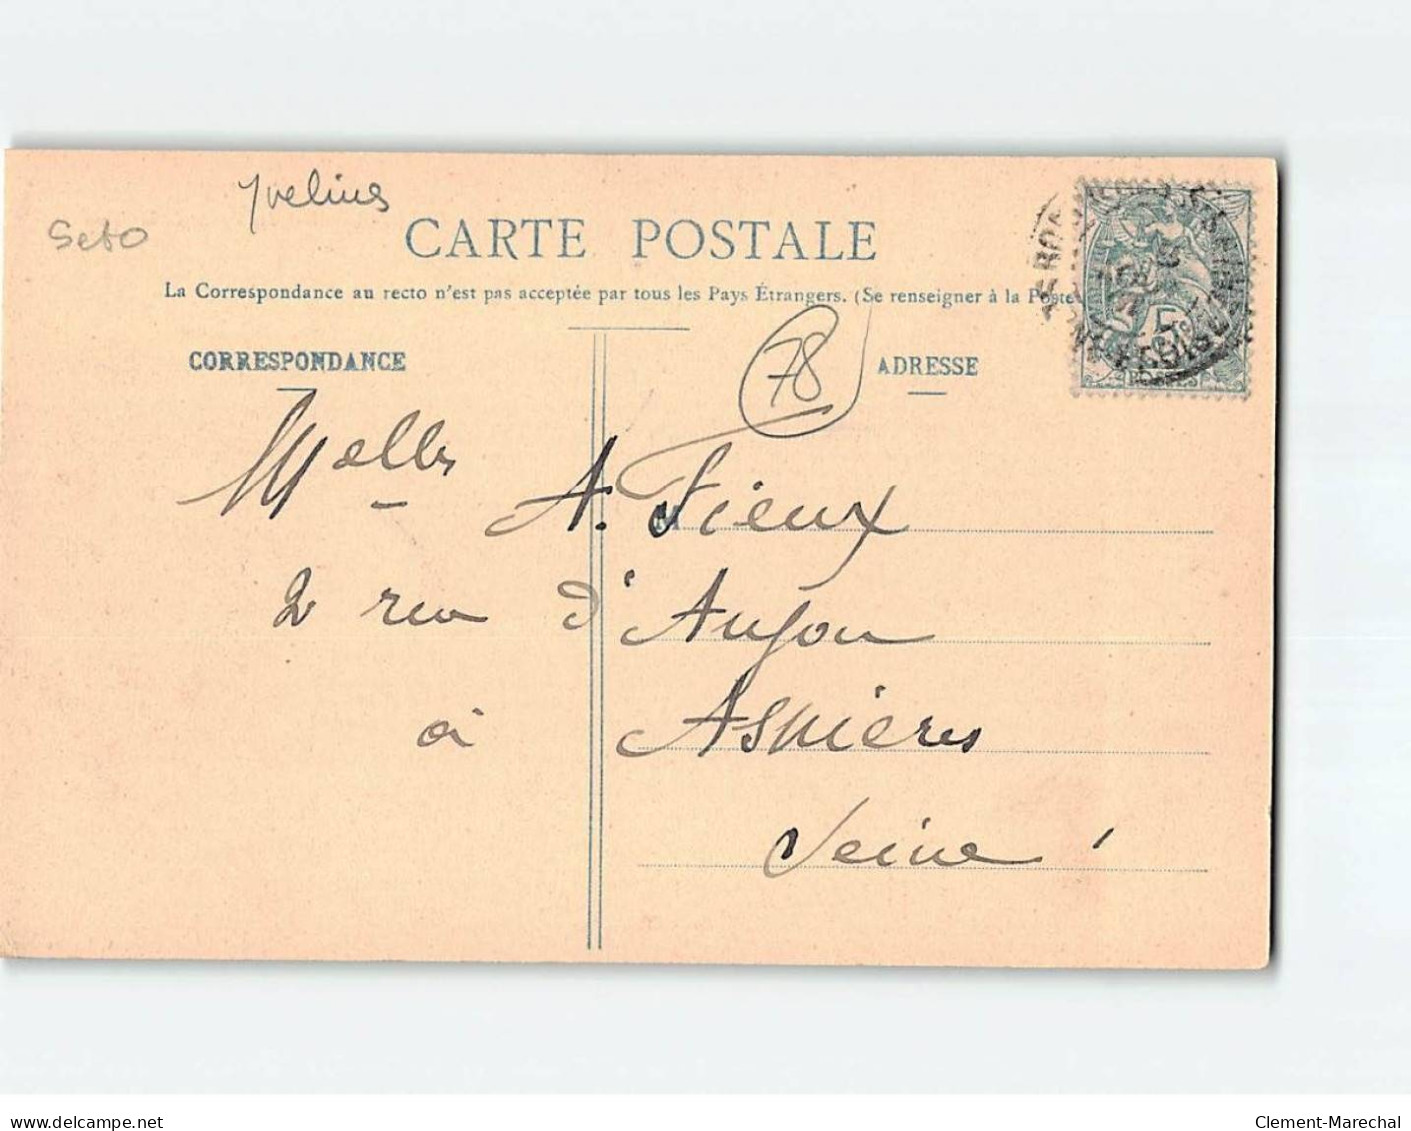 Yvelines
Seto
CARTE POSTALE
La Correspondance au recto n'est pas acceptée par tous les Pays Étrangers. (Se renseigner à la Poste
CORRESPONDANCE
78
ADRESSE
5
POSTES
Melles A. Fieux
2 rue d'Anjou
à Asnières
Seine
delcampe.net
Clement-Marechal